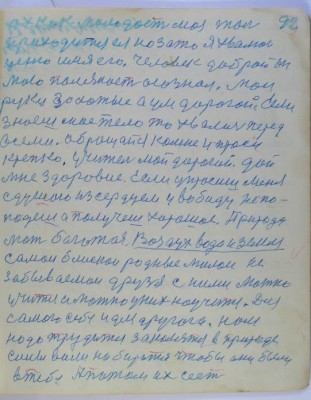 92
приходится а назато я хвалю
ценю имя его, Человек доброй ты
много полезност осознал. Мои
руки золотые а ум дорогой. Если
знаеш мое тело то хвали перед
всеми. Обращайся комне и проси
крепко, учител мой дорогой. дай
мне здоровие. Если упросиш меня
сдушою и сердцем у вобиду непо-
подеш а получеш харошое. Природа
мот богатая. Воздух вода и земля
самой близкой родные милои не
забываемой друзя с ними можно
учится и можно уних научится. Для
самого себе и для другога. нам
надо трудится заколятся в природе
силы воли набиратся чтобы они были
втебе А потом их сеет